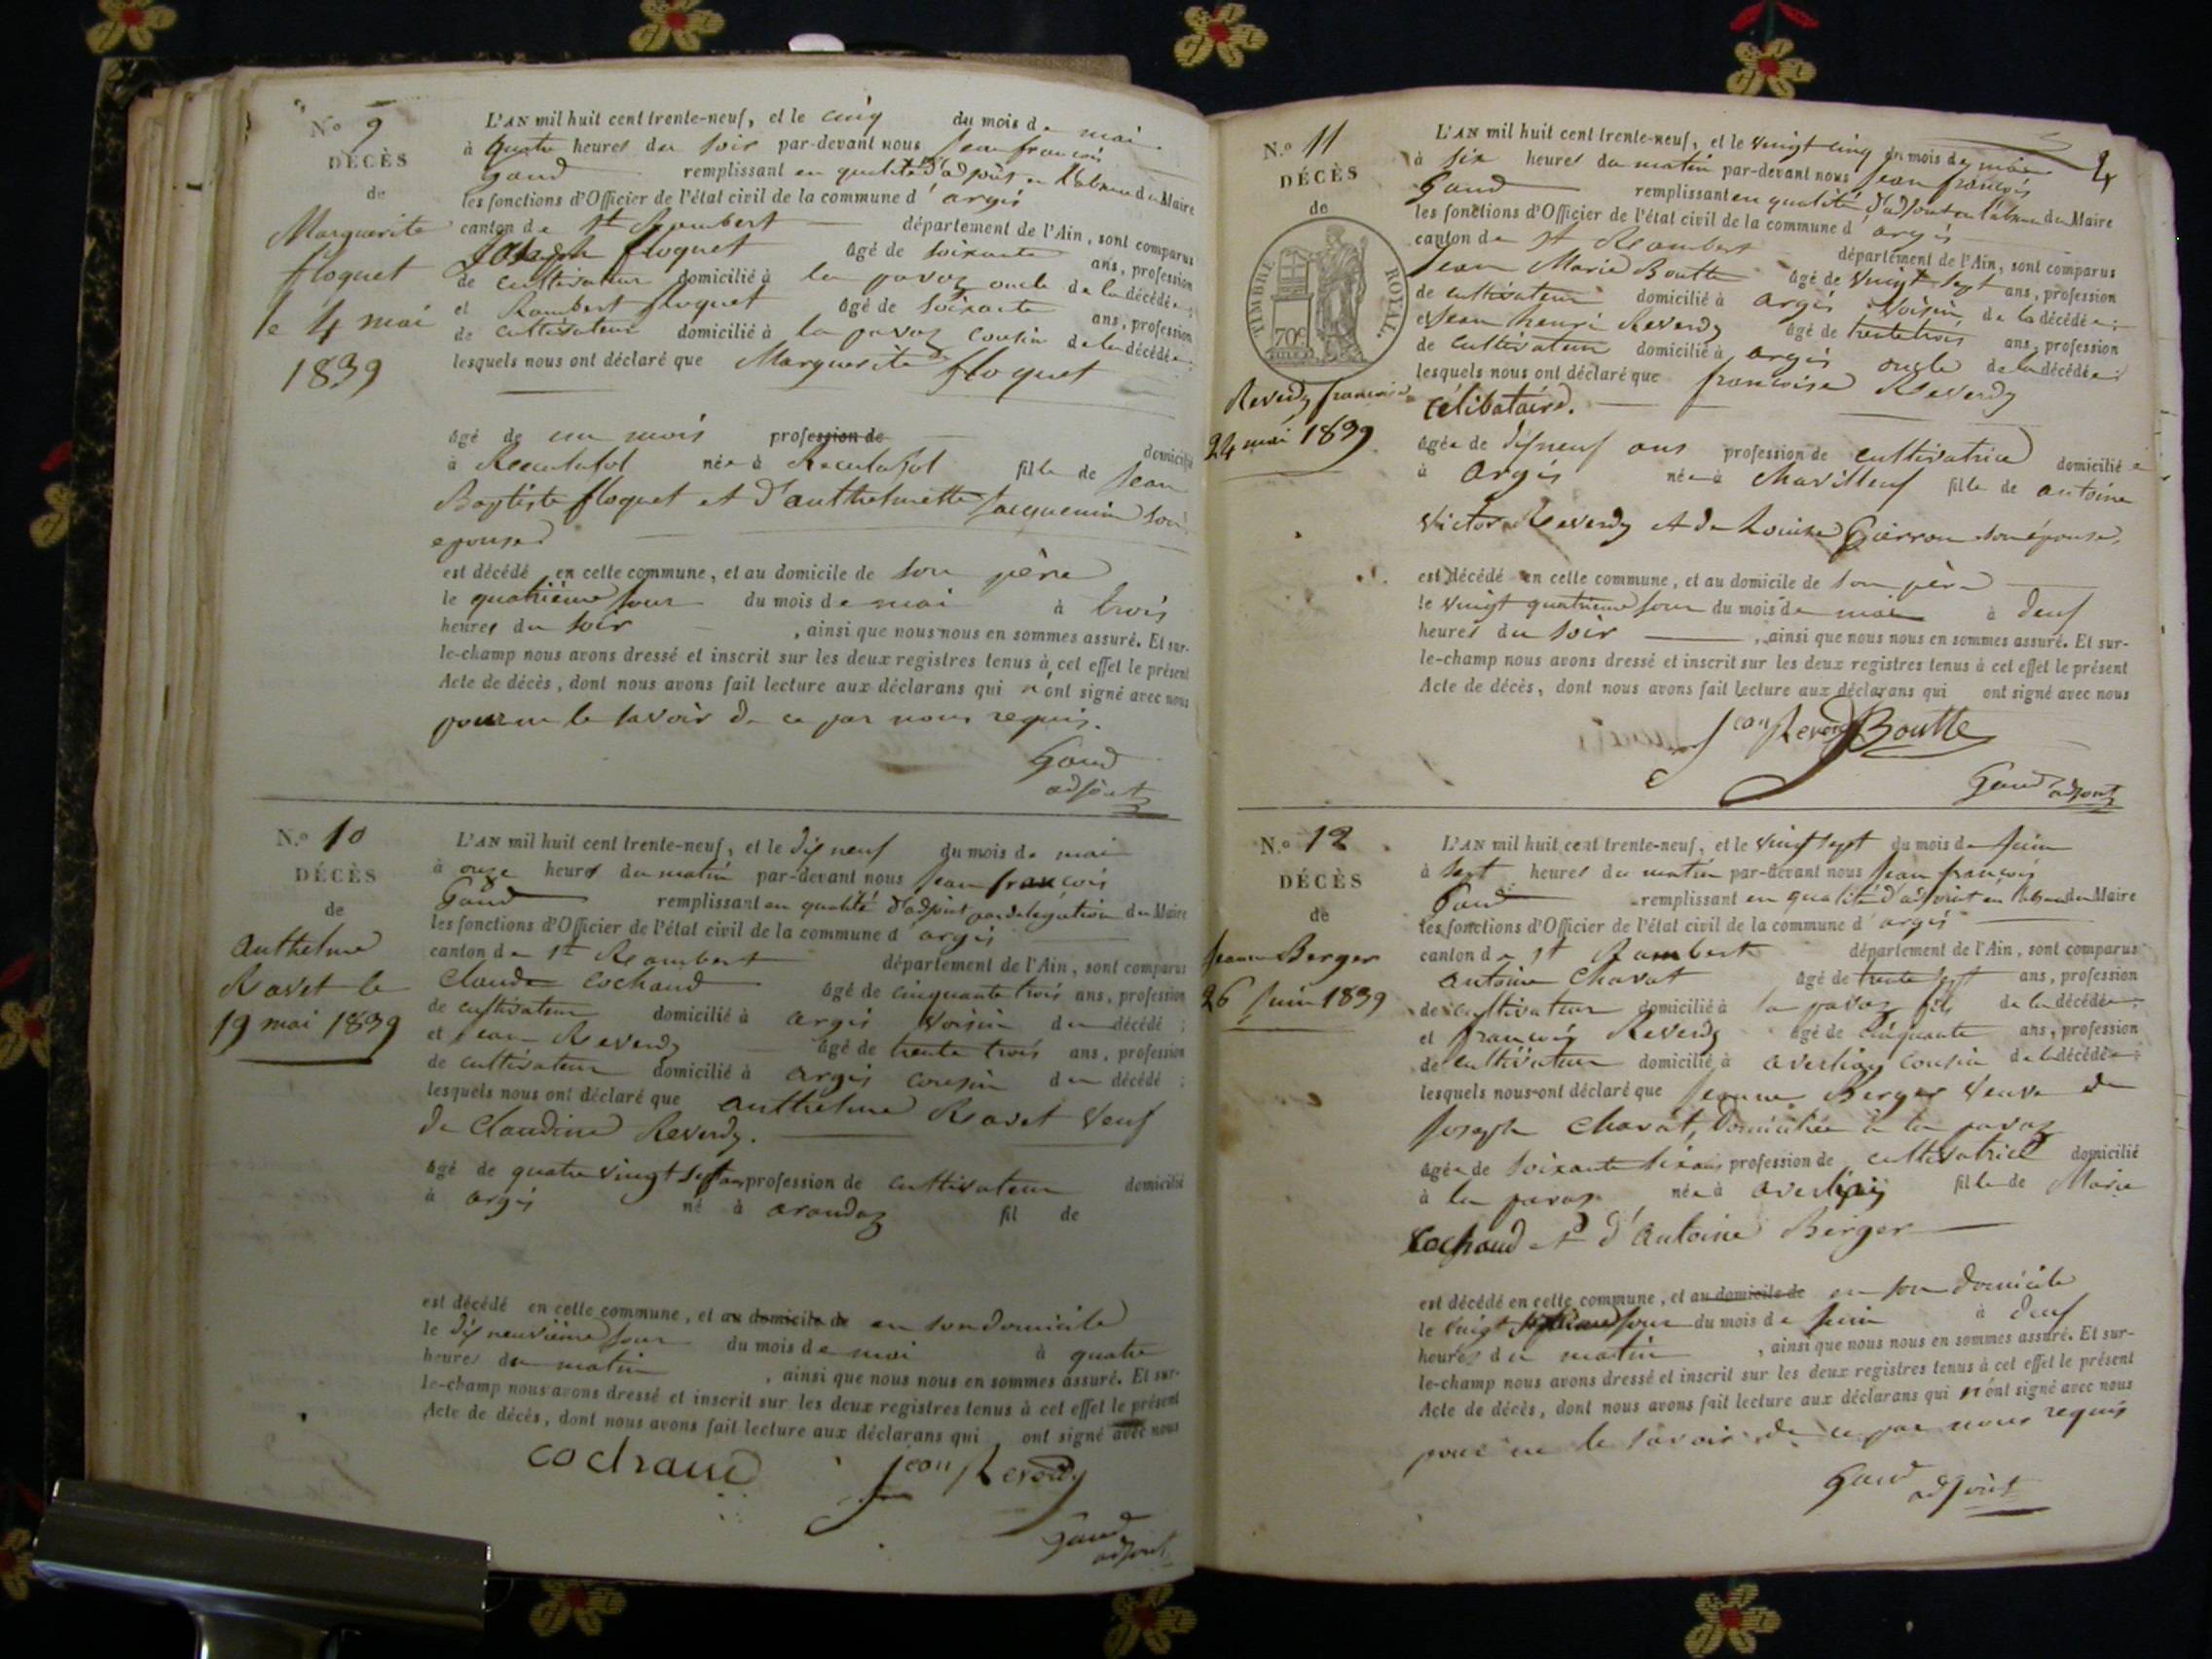 N.o 9
DÉCÈS
de
Marguerite
floquet
le 4 mai
1839
L'AN mil huit cent trente-neuf, et le cinq du mois de mai
à quatre heures du soir par-devant nous Jean françois
gaud remplissant en qualité d'adjoint en l'absence du Maire
les fonctions d'Officier de l'état civil de la commune d'argis
canton de St Rambert département de l'Ain, sont comparus
Joseph floquet âgé de soixante ans, profession
de cultivateur domicilié à la pavaz oncle de la décédée ;
et Rambert floquet âgé de soixante ans, profession
de cultivateur domicilié à la pavaz cousin de la décédée ;
lesquels nous ont déclaré que Marguerite floquet
âgé de un mois profession de domicilié
à Reculafol née à Reculafol fille de Jean
Baptiste floquet et d'anthelmette Jacquemin son
epouse
est décédé en cette commune, et au domicile de son père
le quatrième jour du mois de mai à trois
heures du soir , ainsi que nous nous en sommes assuré. Et sur-
le-champ nous avons dressé et inscrit sur les deux registres tenus à cet effet le présent
Acte de décès, dont nous avons fait lecture aux déclarans qui n'ont signé avec nous
pour ne le savoir de ce par nous requis.
Gaud
adjoint
N.o 10
DÉCÈS
de
anthelme
Ravet le
19 mai 1839
L'AN mil huit cent trente-neuf, et le dix neuf du mois de mai
à onze heures du matin par-devant nous Jean françois
Gaud remplissant en qualité d'adjoint par délégation du Maire
les fonctions d'Officier de l'état civil de la commune d'argis
canton de St Rambert département de l'Ain, sont comparus
Claude Cochaud âgé de cinquante trois ans, profession
de cultivateur domicilié à argis voisin du décédé ;
et jean Reverdy âgé de trente trois ans, profession
de cultivateur domicilié à argis cousin du décédé ;
lesquels nous ont déclaré que anthelme Ravet veuf
de Claudine Reverdy.
âgé de quatre vingt sept ans profession de cultivateur domicilié
à argis né à arandaz fil de
est décédé en cette commune, et au domicile de en son domicile
le dix neuvième jour du mois de mai à quatre
heures du matin , ainsi que nous nous en sommes assuré. Et sur-
le-champ nous avons dressé et inscrit sur les deux registres tenus à cet effet le présent
Acte de décès, dont nous avons fait lecture aux déclarans qui ont signé avec nous
cochaud jean Reverdy
Gaud
adjoint
N.o 11
DÉCÈS
de
TIMBRE ROYAL.
70c
Reverdy francoise
24 mai 1839
L'AN mil huit cent trente-neuf, et le vingt cinq du mois de mai
à six heures du matin par-devant nous Jean françois
Gaud remplissant en qualité d'adjoint en l'absence du Maire
les fonctions d'Officier de l'état civil de la commune d'argis
canton de St Rambert département de l'Ain, sont comparus
Jean Marie Boutte âgé de vingt sept ans, profession
de cultivateur domicilié à argis voisin de la décédée ;
et Jean henri Reverdy âgé de trente trois ans, profession
de cultivateur domicilié à argis oncle de la décédée ;
lesquels nous ont déclaré que francoise Reverdy
célibataire.
âgée de dixneuf ans profession de cultivatrice domicilié e
à argis née à Chavilleuf fille de antoine
Victor Reverdy et de Louise Guerron son épouse.
est décédé en cette commune, et au domicile de son père
le vingt quatrième jour du mois de mai à deux
heures du soir , ainsi que nous nous en sommes assuré. Et sur-
le-champ nous avons dressé et inscrit sur les deux registres tenus à cet effet le présent
Acte de décès, dont nous avons fait lecture aux déclarans qui ont signé avec nous
jean Reverdy Boutte
Gaud adjoint
N.o 12
DÉCÈS
de
Jeanne Berger
26 Juin 1839
L'AN mil huit cent trente-neuf, et le vingt sept du mois de Juin
à sept heures du matin par-devant nous Jean françois
Gaud remplissant en qualité d'adjoint en l'absence du Maire
les fonctions d'Officier de l'état civil de la commune d'argis
canton de St Rambert département de l'Ain, sont comparus
antoine Chavat âgé de trente sept ans, profession
de cultivateur domicilié à la pavaz fils de la décédée ;
et françois Reverdy âgé de cinquante ans, profession
de cultivateur domicilié à cousin de la décédée ;
lesquels nous ont déclaré que Jeanne Berger veuve de
Joseph Chavat, domiciliée à la pavaz
âgée de soixante six ans profession de cultivatrice domicilié
à la pavaz née à fille de Marie
Cochaud et d'Antoine Berger
est décédé en cette commune, et au domicile de en son domicile
le vingt jour du mois de Juin à deux
heures du matin , ainsi que nous nous en sommes assuré. Et sur-
le-champ nous avons dressé et inscrit sur les deux registres tenus à cet effet le présent
Acte de décès, dont nous avons fait lecture aux déclarans qui n'ont signé avec nous
pour ne le savoir de ce par nous requis
Gaud adjoint